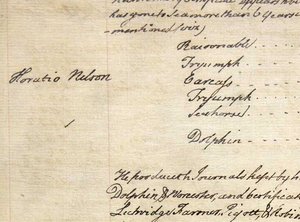 has gone to Sea more than 6 Years
mentioned (viz)
Raisonnable
Horatio Nelson
Tryumph
Carcass
Tryumph
Seahorse
Dolphin
He produceth Journals kept by
Dolphin & Worcester, and Certificates
Lutwidge, Farmer, Pigott, & Robin